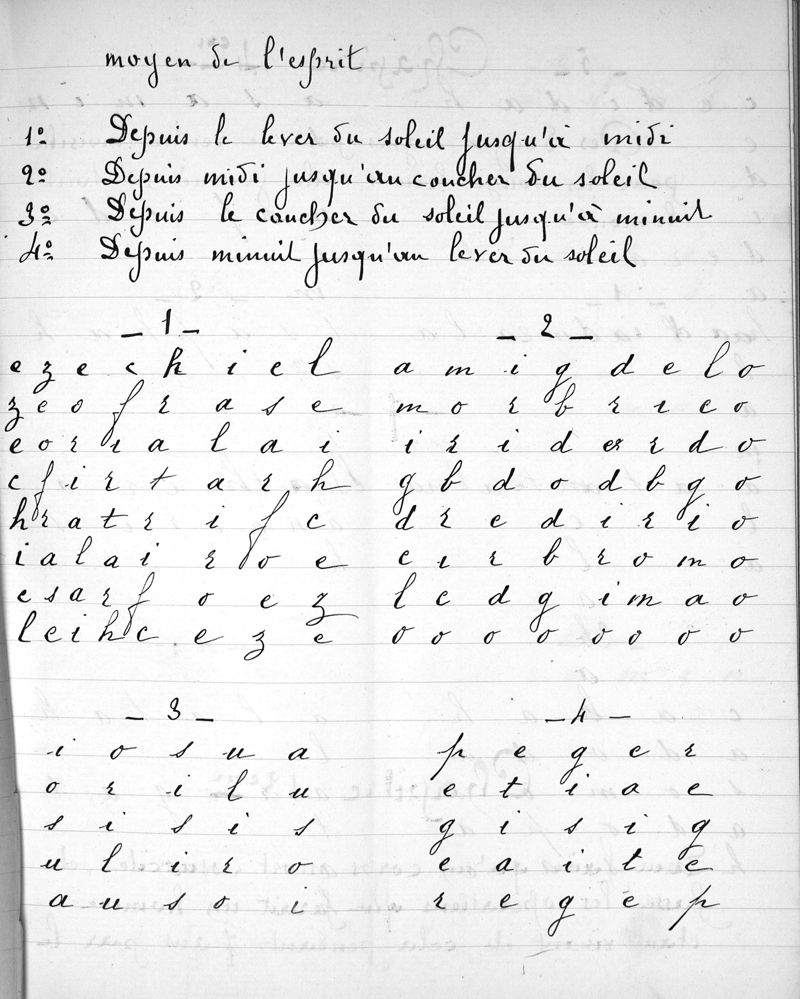 moyen de l'esprit
1º Depuis le lever du soleil jusqu'à midi
2º Depuis midi jusqu'au coucher du soleil
3º Depuis le coucher du soleil jusqu'à minuit
4º Depuis minuit jusqu'au lever du soleil
_ 1 _
e z e c h i e l
z e o f r a s e
e o r i a l a i
c f i r t a r h
h r a t r i f c
i a l a i r o e
e s a r f o e z
l e i h c e z e
_ 2 _
a m i g d e l o
m o r b r i c o
i r i d er r d o
g b d o d b g o
d r e d i r i o
e i r b r o m o
l c d g i m a o
o o o o o o o o
_ 3 _
i o s u a
o r i l u
s i s i s
u l i r o
a u s o i
_ 4 _
p e g e r
e t i a e
g i s i g
e a i t e
r e g e p